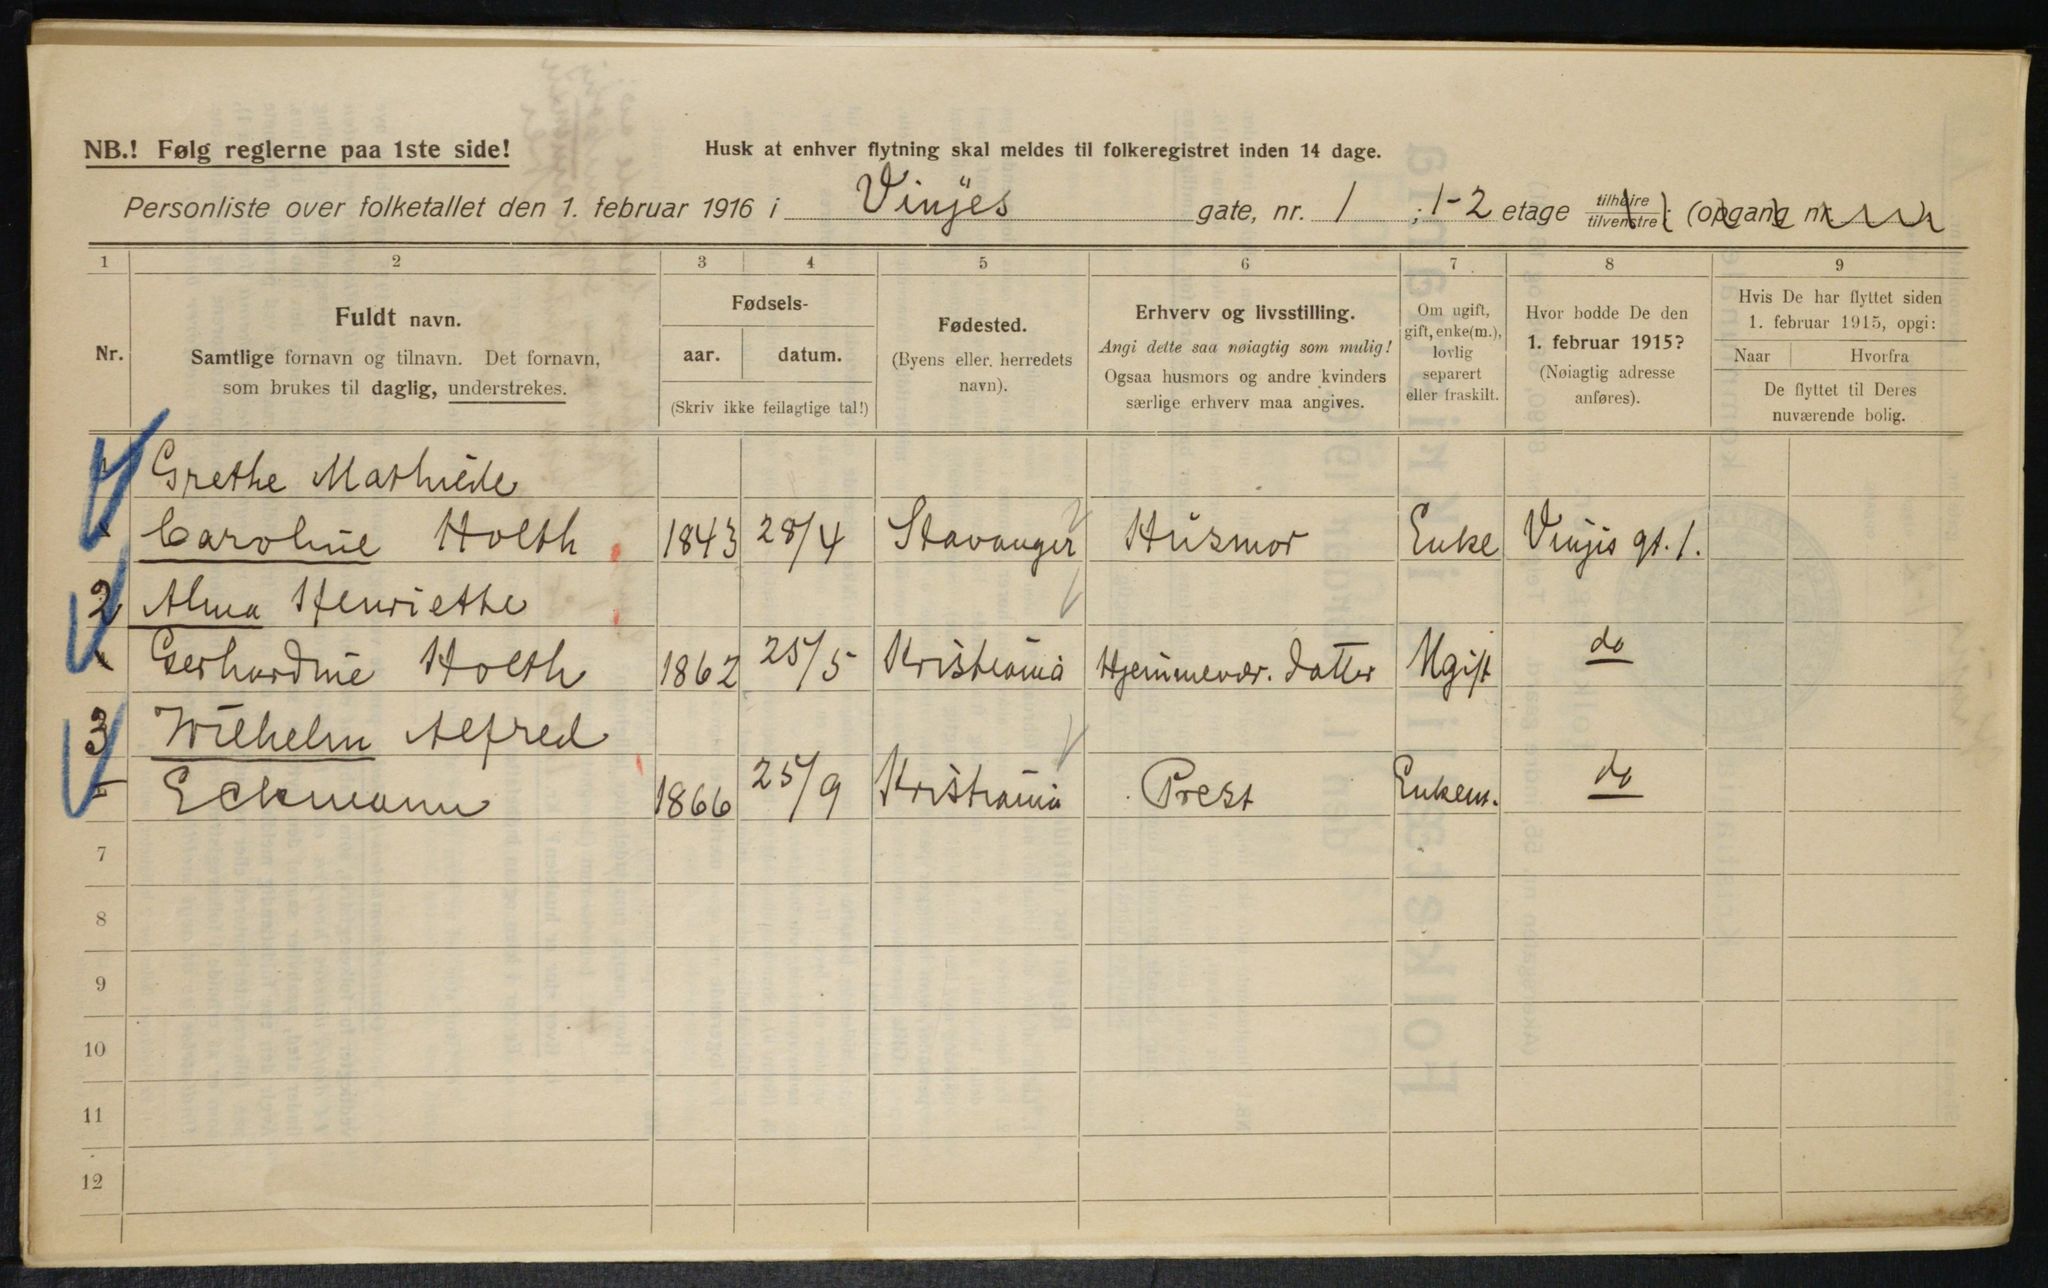 NB.! Følg reglerne paa 1ste side!
Husk at enhver flytning skal meldes til folkeregistret inden 14 dage.
Personliste over folketallet den 1. februar 1916 i Vinjes gate, nr. 1 ; 1-2 etage tilhøire/tilvenstre; (opgang nr.
1 2 3 4 5 6 7 8 9
Nr.
Fuldt navn.
Samtlige fornavn og tilnavn. Det fornavn,
som brukes til daglig, understrekes.
Fødsels-
aar. datum.
(Skriv ikke feilagtige tal!)
Fødested.
(Byens eller herredets
navn).
Erhverv og livsstilling.
Angi dette saa nøiagtig som mulig!
Ogsaa husmors og andre kvinders
særlige erhverv maa angives.
Om ugift,
gift, enke(m.),
lovlig
separert
eller fraskilt.
Hvor bodde De den
1. februar 1915?
(Nøiagtig adresse
anføres).
Hvis De har flyttet siden
1. februar 1915, opgi:
Naar Hvorfra
De flyttet til Deres
nuværende bolig.
Grethe Mathilde
Caroline Holth 1843 28/4 Stavanger Husmor Enke Vinjes gt. 1.
2 Alma Henriette
Gerhardine Holth 1862 25/5 Kristiania Hjemmevær. datter Ugift do
3 Wilhelm Alfred
Eckmann 1866 25/9 Kristiania Prest Enkem. do
7
8
9
10
11
12